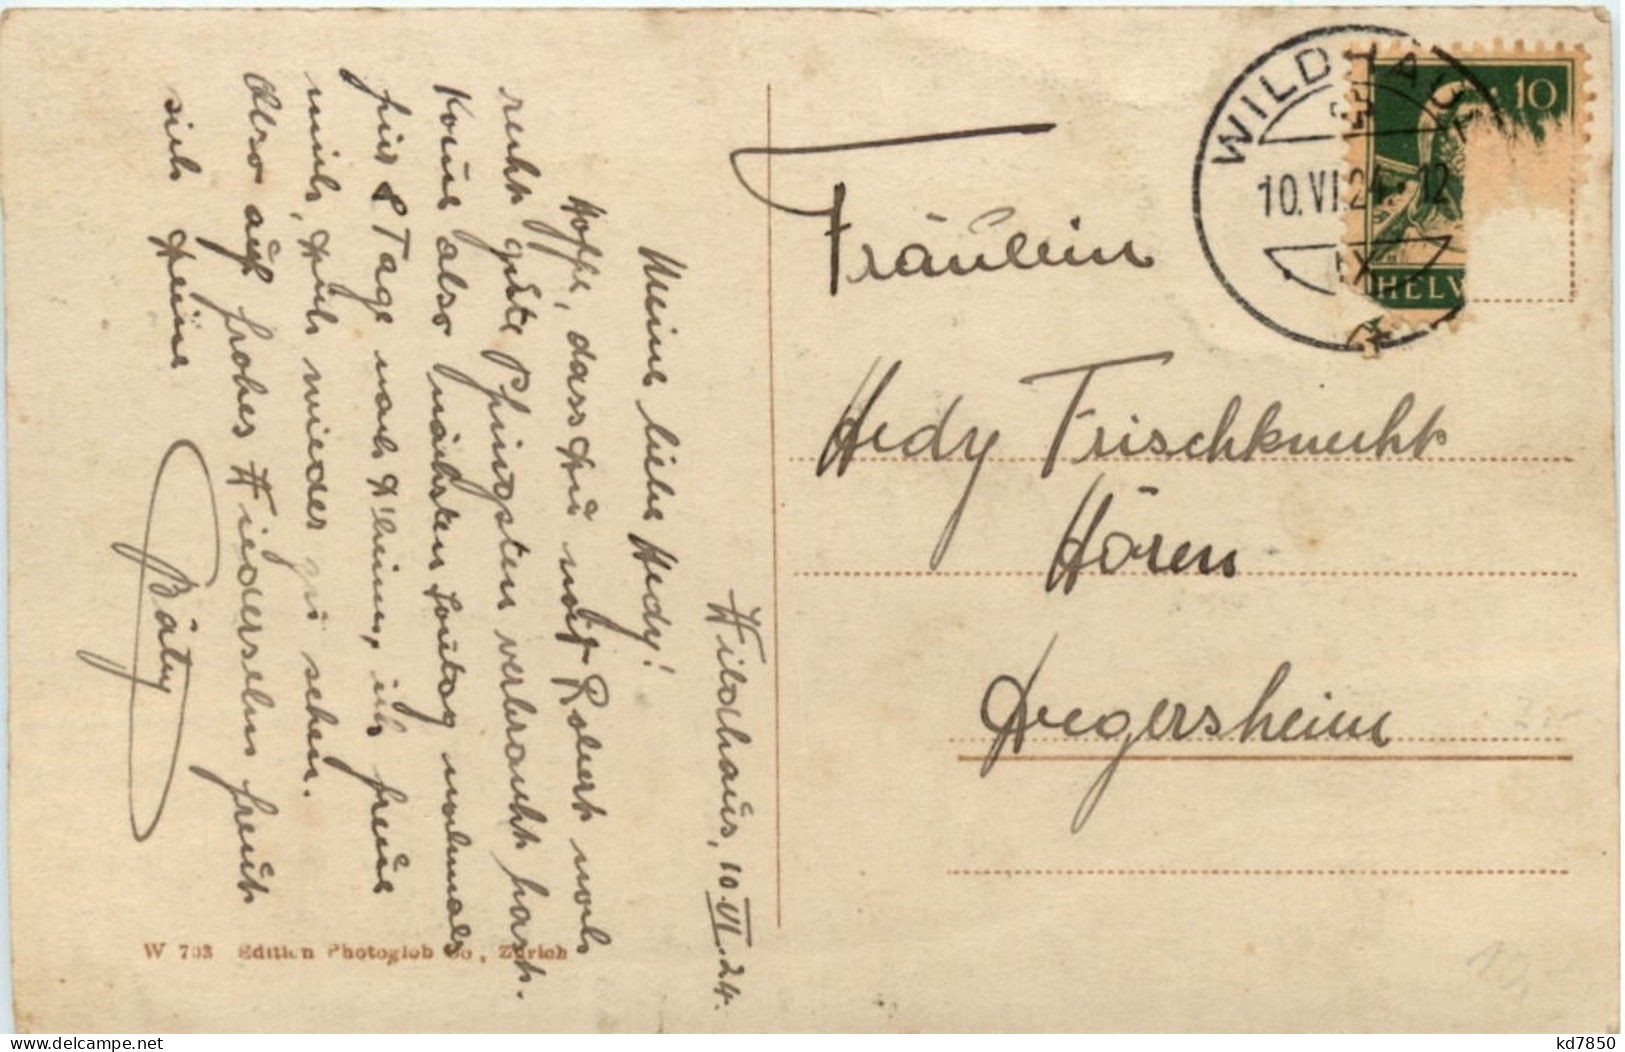 Wildhaus, 10.VI.24.
Meine liebe Hedy!
Hoffe, dass Du mit Robert noch
recht gute Pfingsten verbracht hast.
Komme also nächsten Sonntag nochmals
für 8 Tage nach D'heim, ich freue
mich, Dich wieder zu sehen.
Also auf frohes Wiedersehn freut
sich Deine
Bäty
Fräulein
Hedy Frischknecht
Hören
Degersheim
WILDHAUS
10.VI.24.-12
IX
10
HELV
W 703 Edition Photoglob Co., Zürich
kd7850